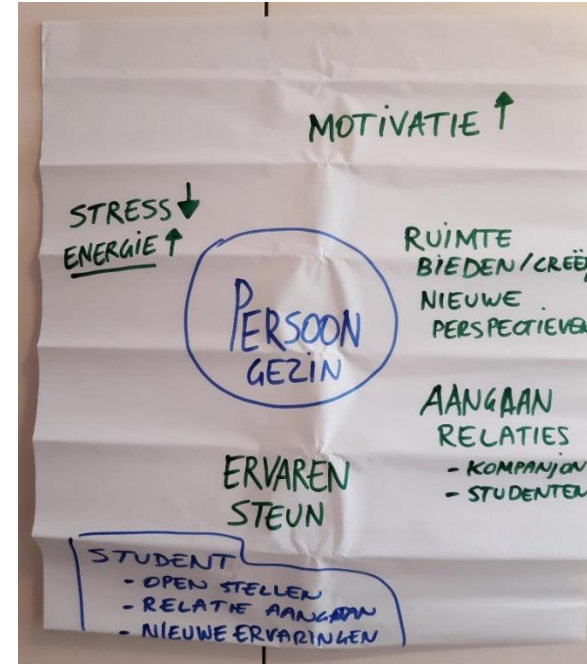 MOTIVATIE ↑
STRESS ↓
ENERGIE ↑
PERSOON
GEZIN
RUIMTE
BIEDEN/CREË
NIEUWE
PERSPECTIEVEN
AANGAAN
RELATIES
- KOMPANJON
- STUDENTEN
ERVAREN
STEUN
STUDENT
- OPEN STELLEN
- RELATIE AANGAAN
- NIEUWE ERVARINGEN